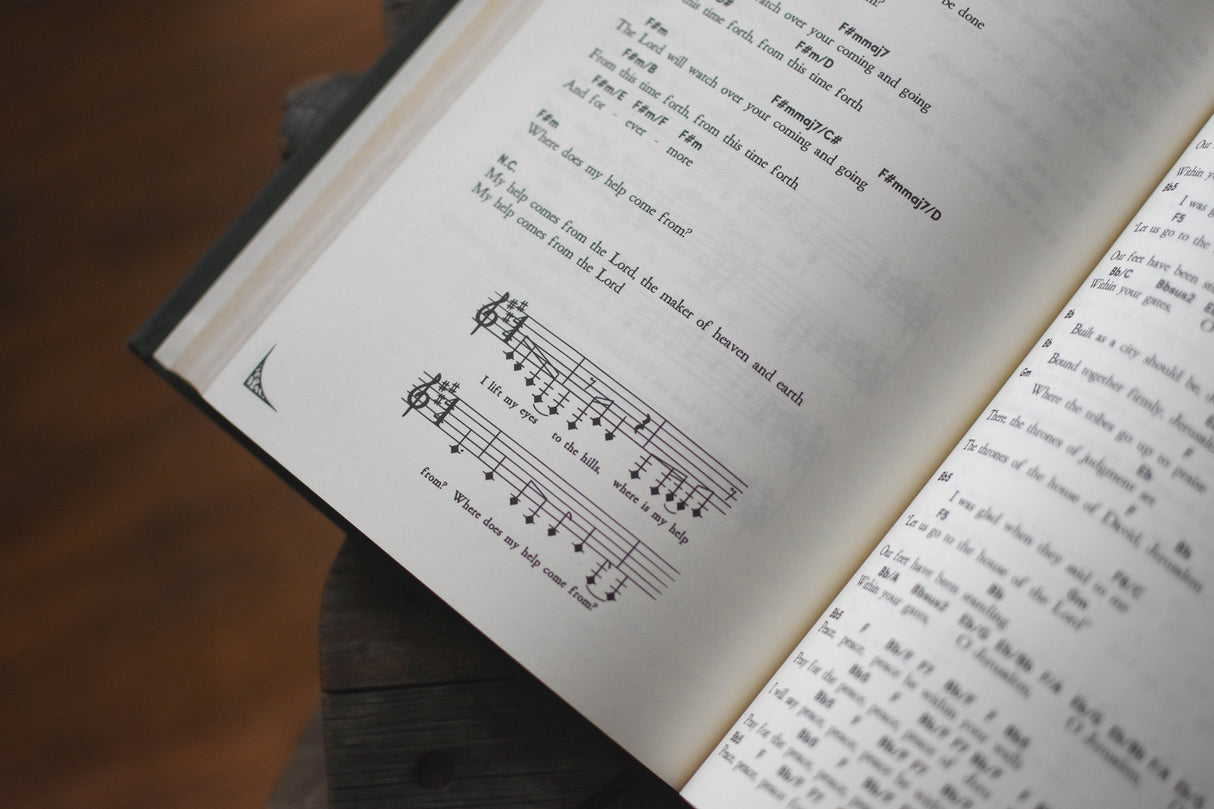 be done
F#mmaj7
watch over your coming and going
F#m/D
this time forth, from this time forth
F#m F#mmaj7/C#
The Lord will watch over your coming and going
F#m/B F#mmaj7/D
From this time forth, from this time forth
F#m/E F#m/F F#m
And for - ever - more
F#m
Where does my help come from?
N.C.
My help comes from the Lord, the maker of heaven and earth
My help comes from the Lord
I lift my eyes to the hills, where is my help
from? Where does my help come from?
Our
Within
Bb5
I was
F5
"Let us go to the
Our feet have been
Bb/C Bbsus2
Within your gates, O
Bb
Built as a city should be,
Bb
Bound together firmly, Jerusalem
Gm F
Where the tribes go up to praise
Eb
There, the thrones of judgment set
F Bb
The thrones of the house of David, Jerusalem
Bb5 F9/C
I was glad when they said to me
F5 Gm
"Let us go to the house of the Lord"
Bb
Our feet have been standing
Bb/A Bbsus2 Eb/G Eb/Bb F/A
Within your gates, O Jerusalem,
O Jerusalem,
Bb5 F Bb/F F7 Bb/F F
Peace, peace, peace be within your walls
Pray for the peace, peace, peace of
I will say peace, peace, peace be
Pray for the peace, peace, peace
Bb5 F Bb/F F7
Peace, peace, peace